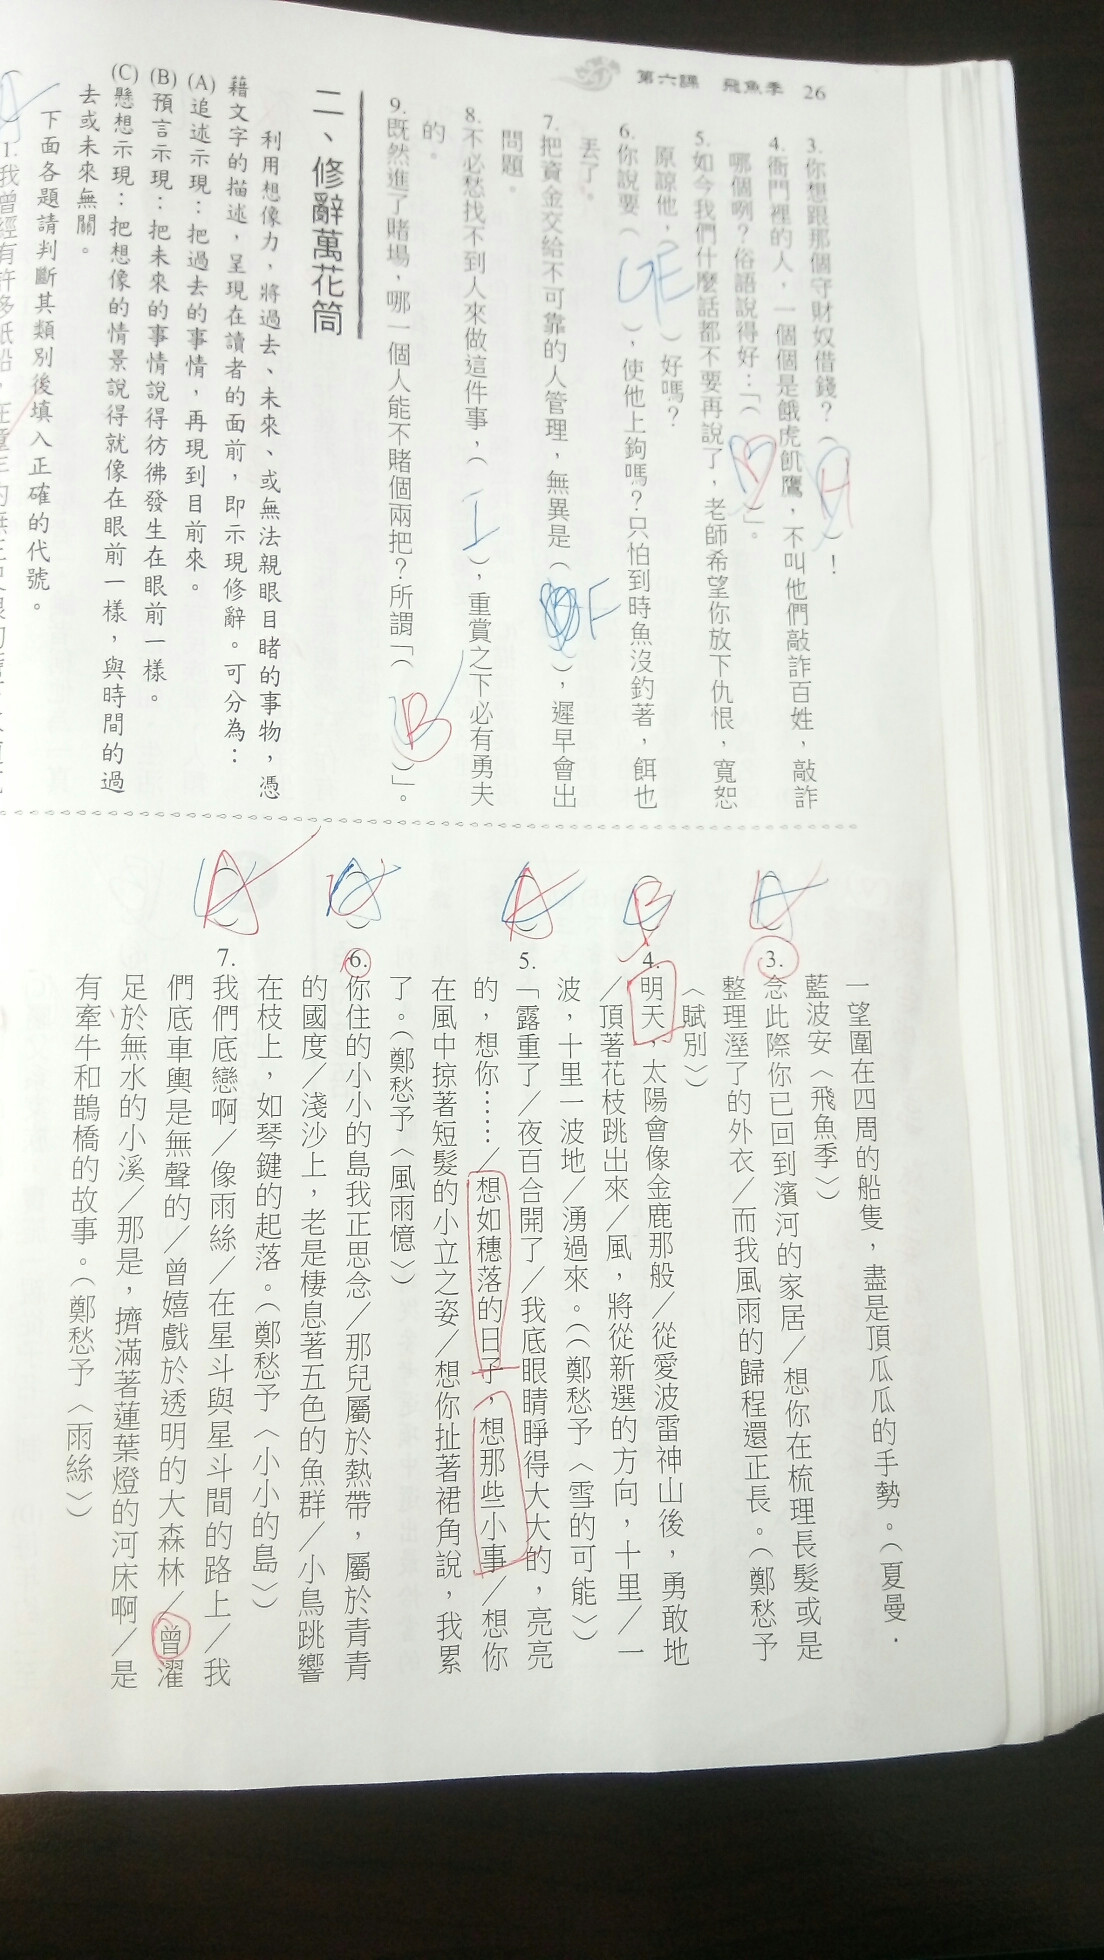 第六課　飛魚季　26
3.你想跟那個守財奴借錢？（　）！
4.衙門裡的人，一個個是餓虎飢鷹，不叫他們敲詐百姓，敲詐
哪個咧？俗語說得好：「（B）」。
5.如今我們什麼話都不要再說了，老師希望你放下仇恨，寬恕
原諒他，（　）好嗎？
6.你說要（GE），使他上鉤嗎？只怕到時魚沒釣著，餌也
丟了。
7.把資金交給不可靠的人管理，無異是（F），遲早會出
問題。
8.不必愁找不到人來做這件事，（I），重賞之下必有勇夫
的。
9.既然進了賭場，哪一個人能不賭個兩把？所謂「（B）」。
二、修辭萬花筒
利用想像力，將過去、未來、或無法親眼目睹的事物，憑
藉文字的描述，呈現在讀者的面前，即示現修辭。可分為：
(A)追述示現：把過去的事情，再現到目前來。
(B)預言示現：把未來的事情說得彷彿發生在眼前一樣。
(C)懸想示現：把想像的情景說得就像在眼前一樣，與時間的過
去或未來無關。
下面各題請判斷其類別後填入正確的代號。
1.我曾經有許多紙船，在童年的
一望圍在四周的船隻，盡是頂瓜瓜的手勢。（夏曼．
藍波安〈飛魚季〉）
3.念此際你已回到濱河的家居／想你在梳理長髮或是
整理溼了的外衣／而我風雨的歸程還正長。（鄭愁予
〈賦別〉）
（B）4.明天，太陽會像金鹿那般／從愛波雷神山後，勇敢地
／頂著花枝跳出來／風，將從新選的方向，十里／一
波，十里一波地／湧過來。（（鄭愁予〈雪的可能〉）
（A）5.「露重了／夜百合開了／我底眼睛睜得大大的，亮亮
的，想你……／想如穗落的日子，想那些小事／想你
在風中掠著短髮的小立之姿／想你扯著裙角說，我累
了。（鄭愁予〈風雨憶〉）
6.你住的小小的島我正思念／那兒屬於熱帶，屬於青青
的國度／淺沙上，老是棲息著五色的魚群／小鳥跳響
在枝上，如琴鍵的起落。（鄭愁予〈小小的島〉）
（A）7.我們底戀啊／像雨絲／在星斗與星斗間的路上／我
們底車輿是無聲的／曾嬉戲於透明的大森林／曾濯
足於無水的小溪／那是，擠滿著蓮葉燈的河床啊／是
有牽牛和鵲橋的故事。（鄭愁予〈雨絲〉）